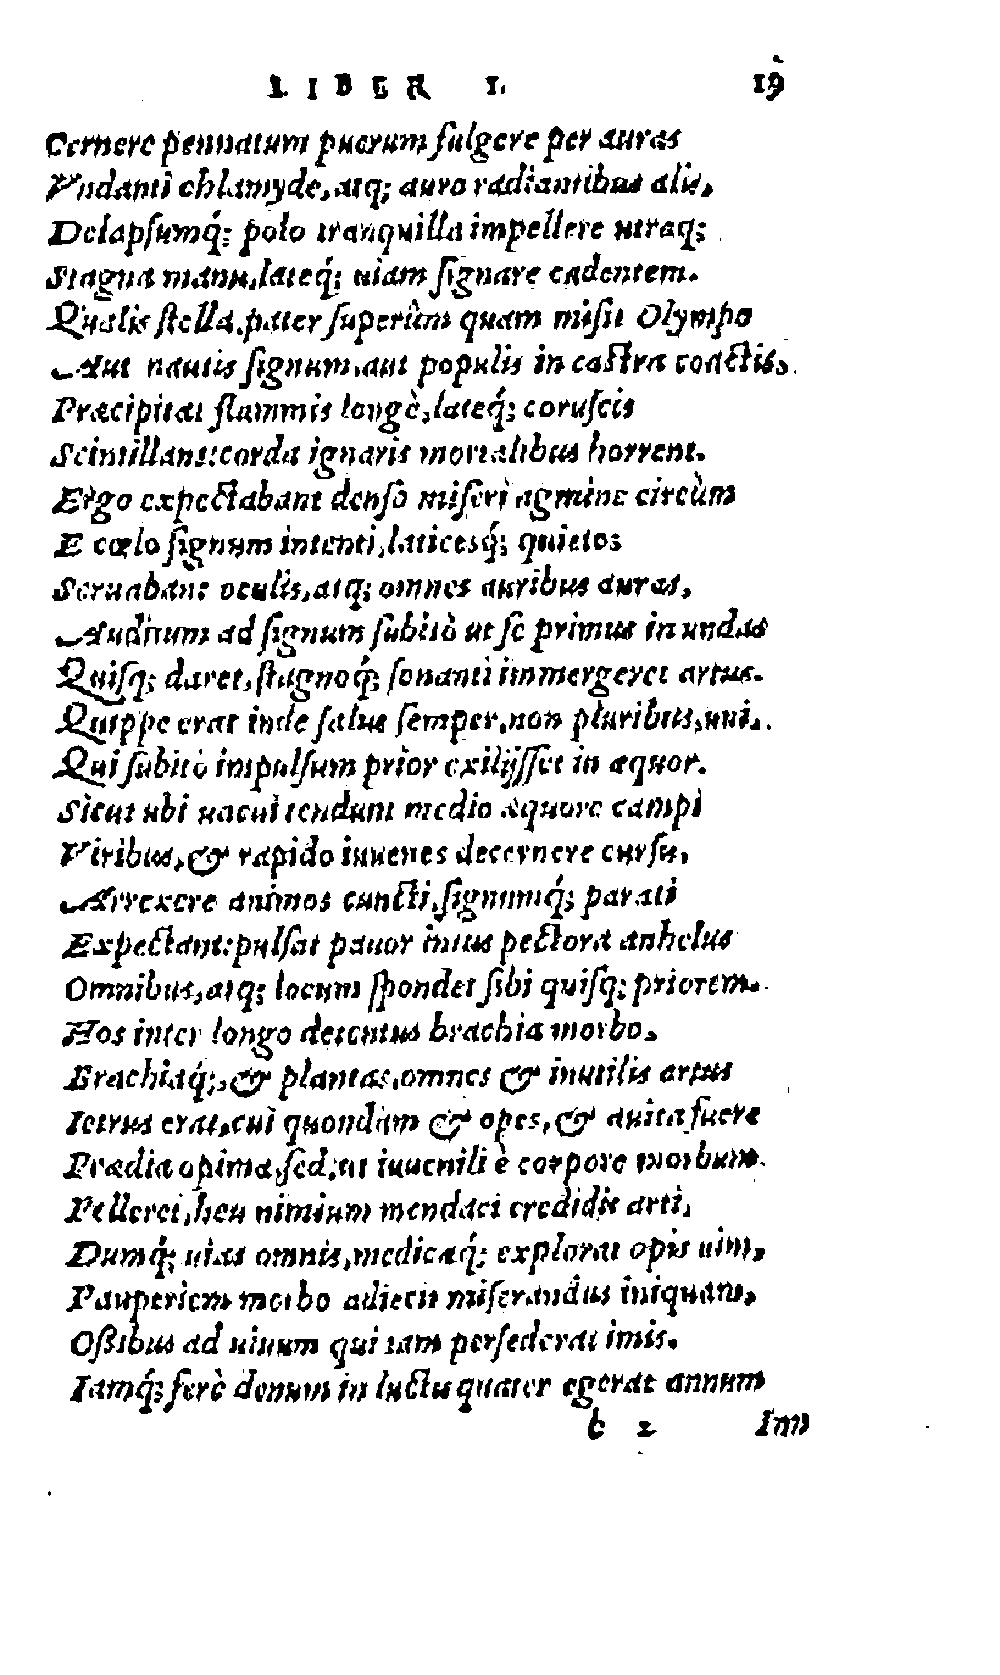 LIBER I. 19
Cernere pennatum puerum fulgere per auras
Vndanti chlamyde, atq; auro radiantibus alis,
Delapsumq́; polo tranquilla impellere utraq;
Stagna manu, lateq́; uiam signare cadentem.
Qualis stella, pater superûm quam misit Olympo
Aut nautis signum, aut populis in castra coactis,
Præcipitat flammis longè, lateq́; coruscis
Scintillans: corda ignaris mortalibus horrent.
Ergo expectabant denso miseri agmine circùm
E cœlo signum intenti, laticesq́; quietos
Seruabant oculis, atq; omnes auribus auras,
Auditum ad signum subitò ut se primus in undas
Quisq; daret, stagnoq́; sonanti immergeret artus.
Quippe erat inde salus semper, non pluribus, uni,
Qui subitò impulsum prior exilijsset in æquor.
Sicut ubi uacui tendunt medio æquore campi
Viribus, & rapido iuuenes decernere cursu,
Arrexere animos cuncti, signumq́; parati
Expectant: pulsat pauor intus pectora anhelus
Omnibus, atq; locum spondet sibi quisq; priorem.
Hos inter longo detentus brachia morbo,
Brachiaq́;, & plantas, omnes & inutilis artus
Ietrus erat, cui quondam & opes, & auita fuere
Prædia opima, sed, ut iuuenili è corpore morbum
Pelleret, heu nimium mendaci credidit arti,
Dumq́; uias omnis, medicaq́; explorat opis uim,
Pauperiem morbo adiecit miserandus iniquam,
Ossibus ad uiuum qui iam persederat imis.
Iamq́; ferè denum in luctu quater egerat annum
c 2 Im